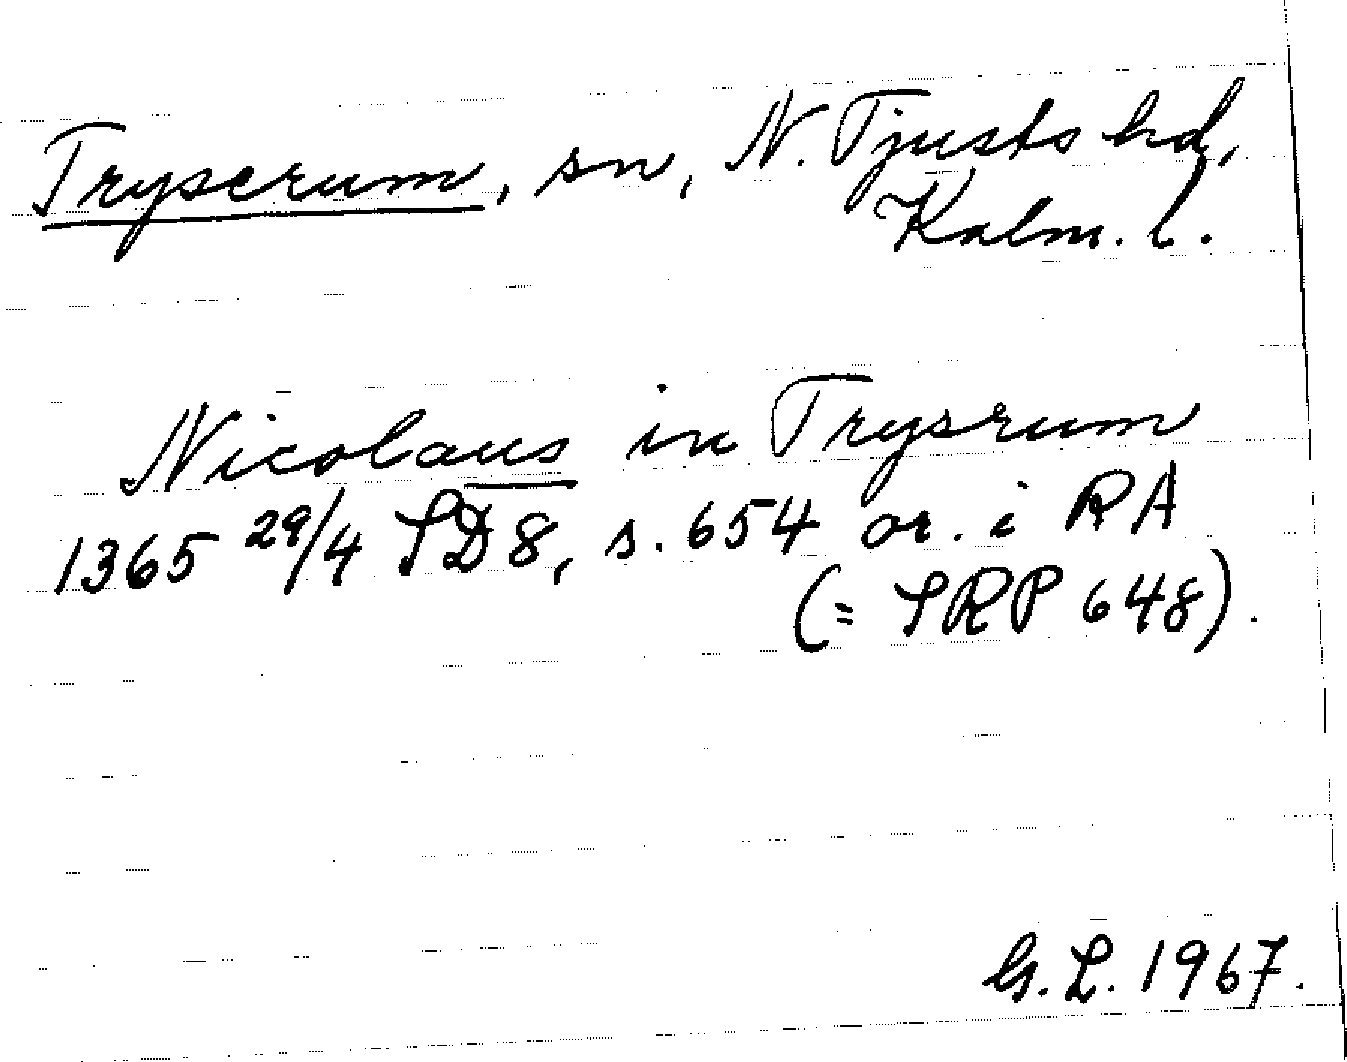 Tryserum, sn, N. Tjusts hd,
Kalm. l.
Nicolaus in Trysrum
1365 29/4 SD 8, s. 654 or. i RA
(= SRP 648).
G. L. 1967.